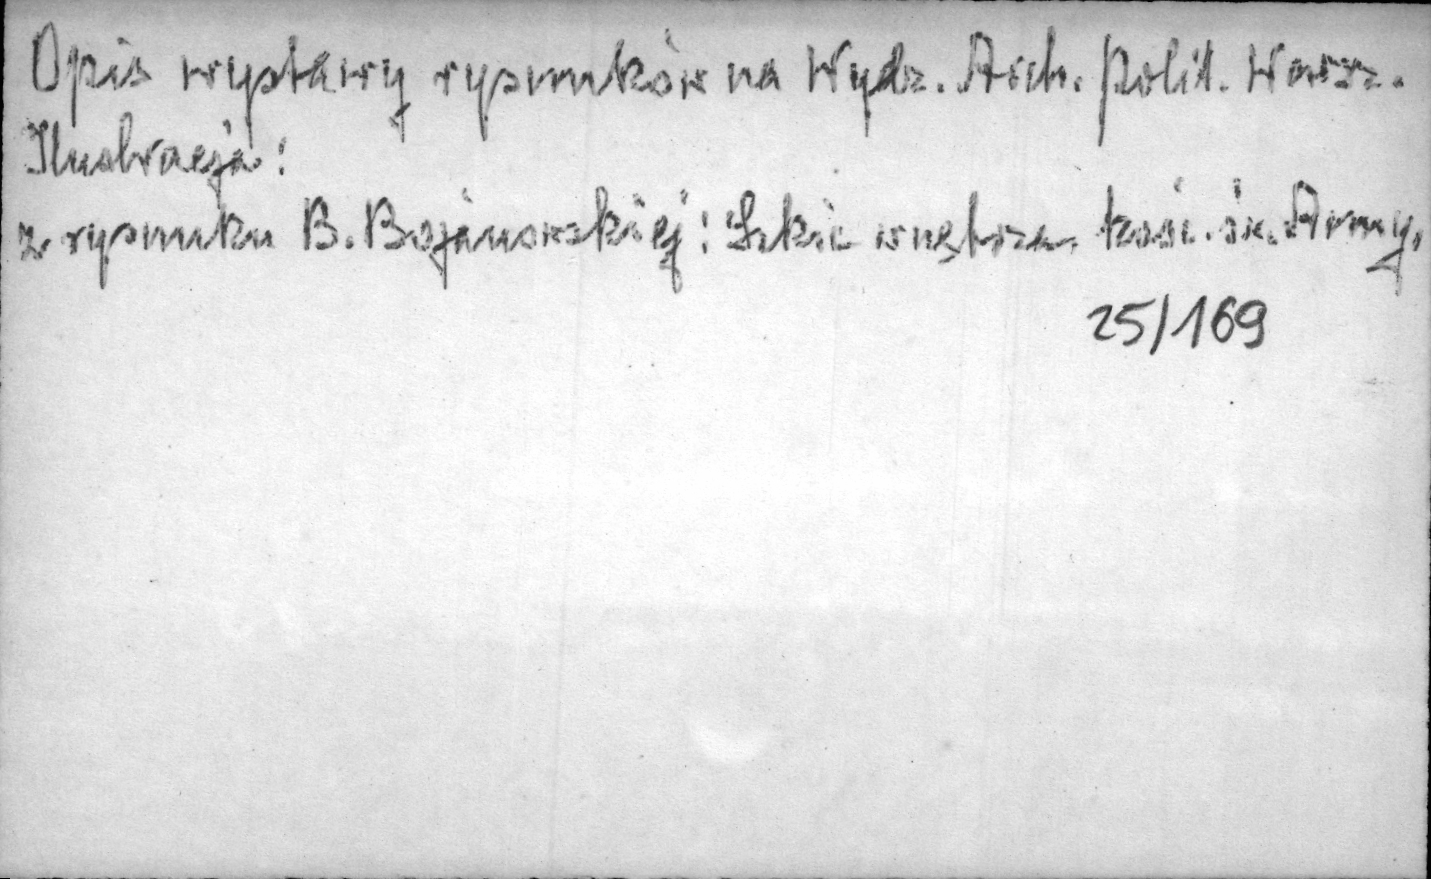 Opis wystawy rysunków na Wydz. Arch. Polit. Warsz.
Ilustracja:
z rysunku B. Bojanowskiej: Szkic wnętrza kość. św. Anny.
25/169